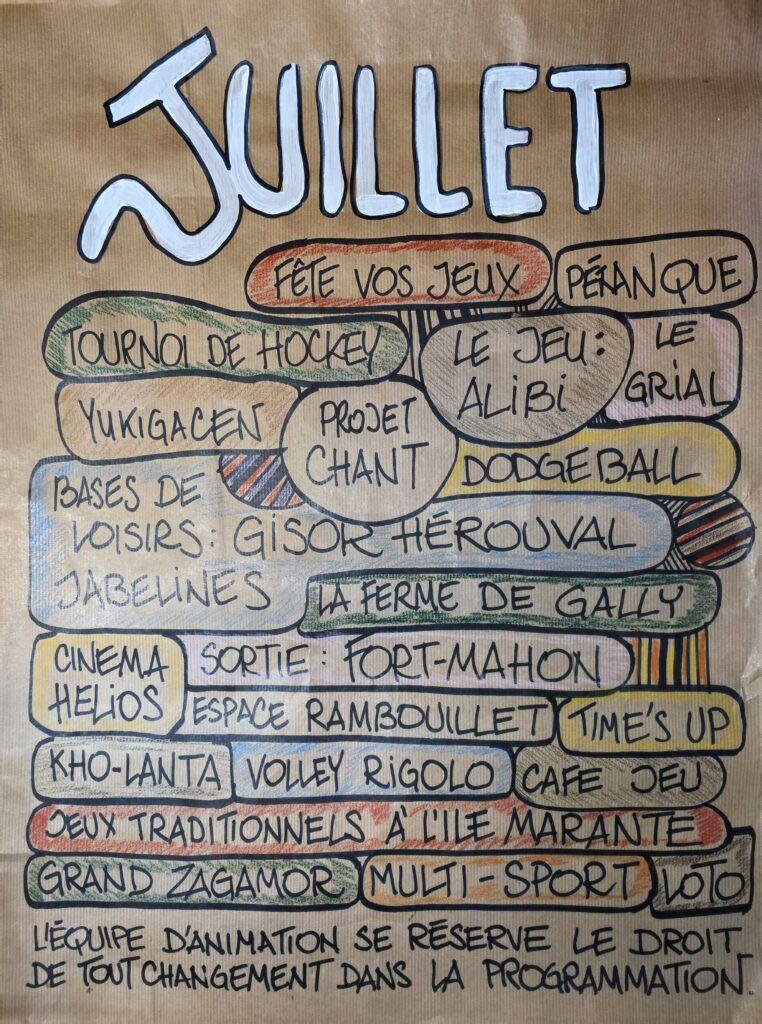 JUILLET
FÊTE VOS JEUX
PÉTANQUE
TOURNOI DE HOCKEY
LE JEU :
ALIBI
LE
GRIAL
YUKIGACEN
PROJET
CHANT
DODGEBALL
BASES DE
LOISIRS : GISOR HÉROUVAL
JABELINES
LA FERME DE GALLY
CINEMA
HELIOS
SORTIE : FORT-MAHON
ESPACE RAMBOUILLET
TIME'S UP
KHO-LANTA
VOLLEY RIGOLO
CAFE JEU
JEUX TRADITIONNELS À L'ILE MARANTE
GRAND ZAGAMOR
MULTI-SPORT
LOTO
L'ÉQUIPE D'ANIMATION SE RÉSERVE LE DROIT
DE TOUT CHANGEMENT DANS LA PROGRAMMATION.